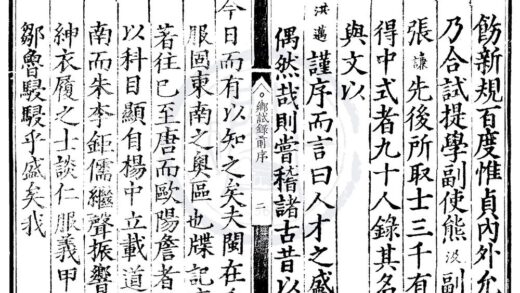 飭新規百度惟貞內外允
乃合試提學副使熊汲副
張謙先後所取士三千有
得中式者九十人錄其名
與文以
洪邁謹序而言曰人才之盛
偶然哉則嘗稽諸古昔以
鄉試錄前序 二
今日而有以知之矣夫閩在
服固東南之奧區也牒記
著往已至唐而歐陽詹者
以科目顯自楊中立載道
南而朱李鉅儒繼聲振響
紳衣履之士談仁服義甲
鄒魯駸駸乎盛矣我